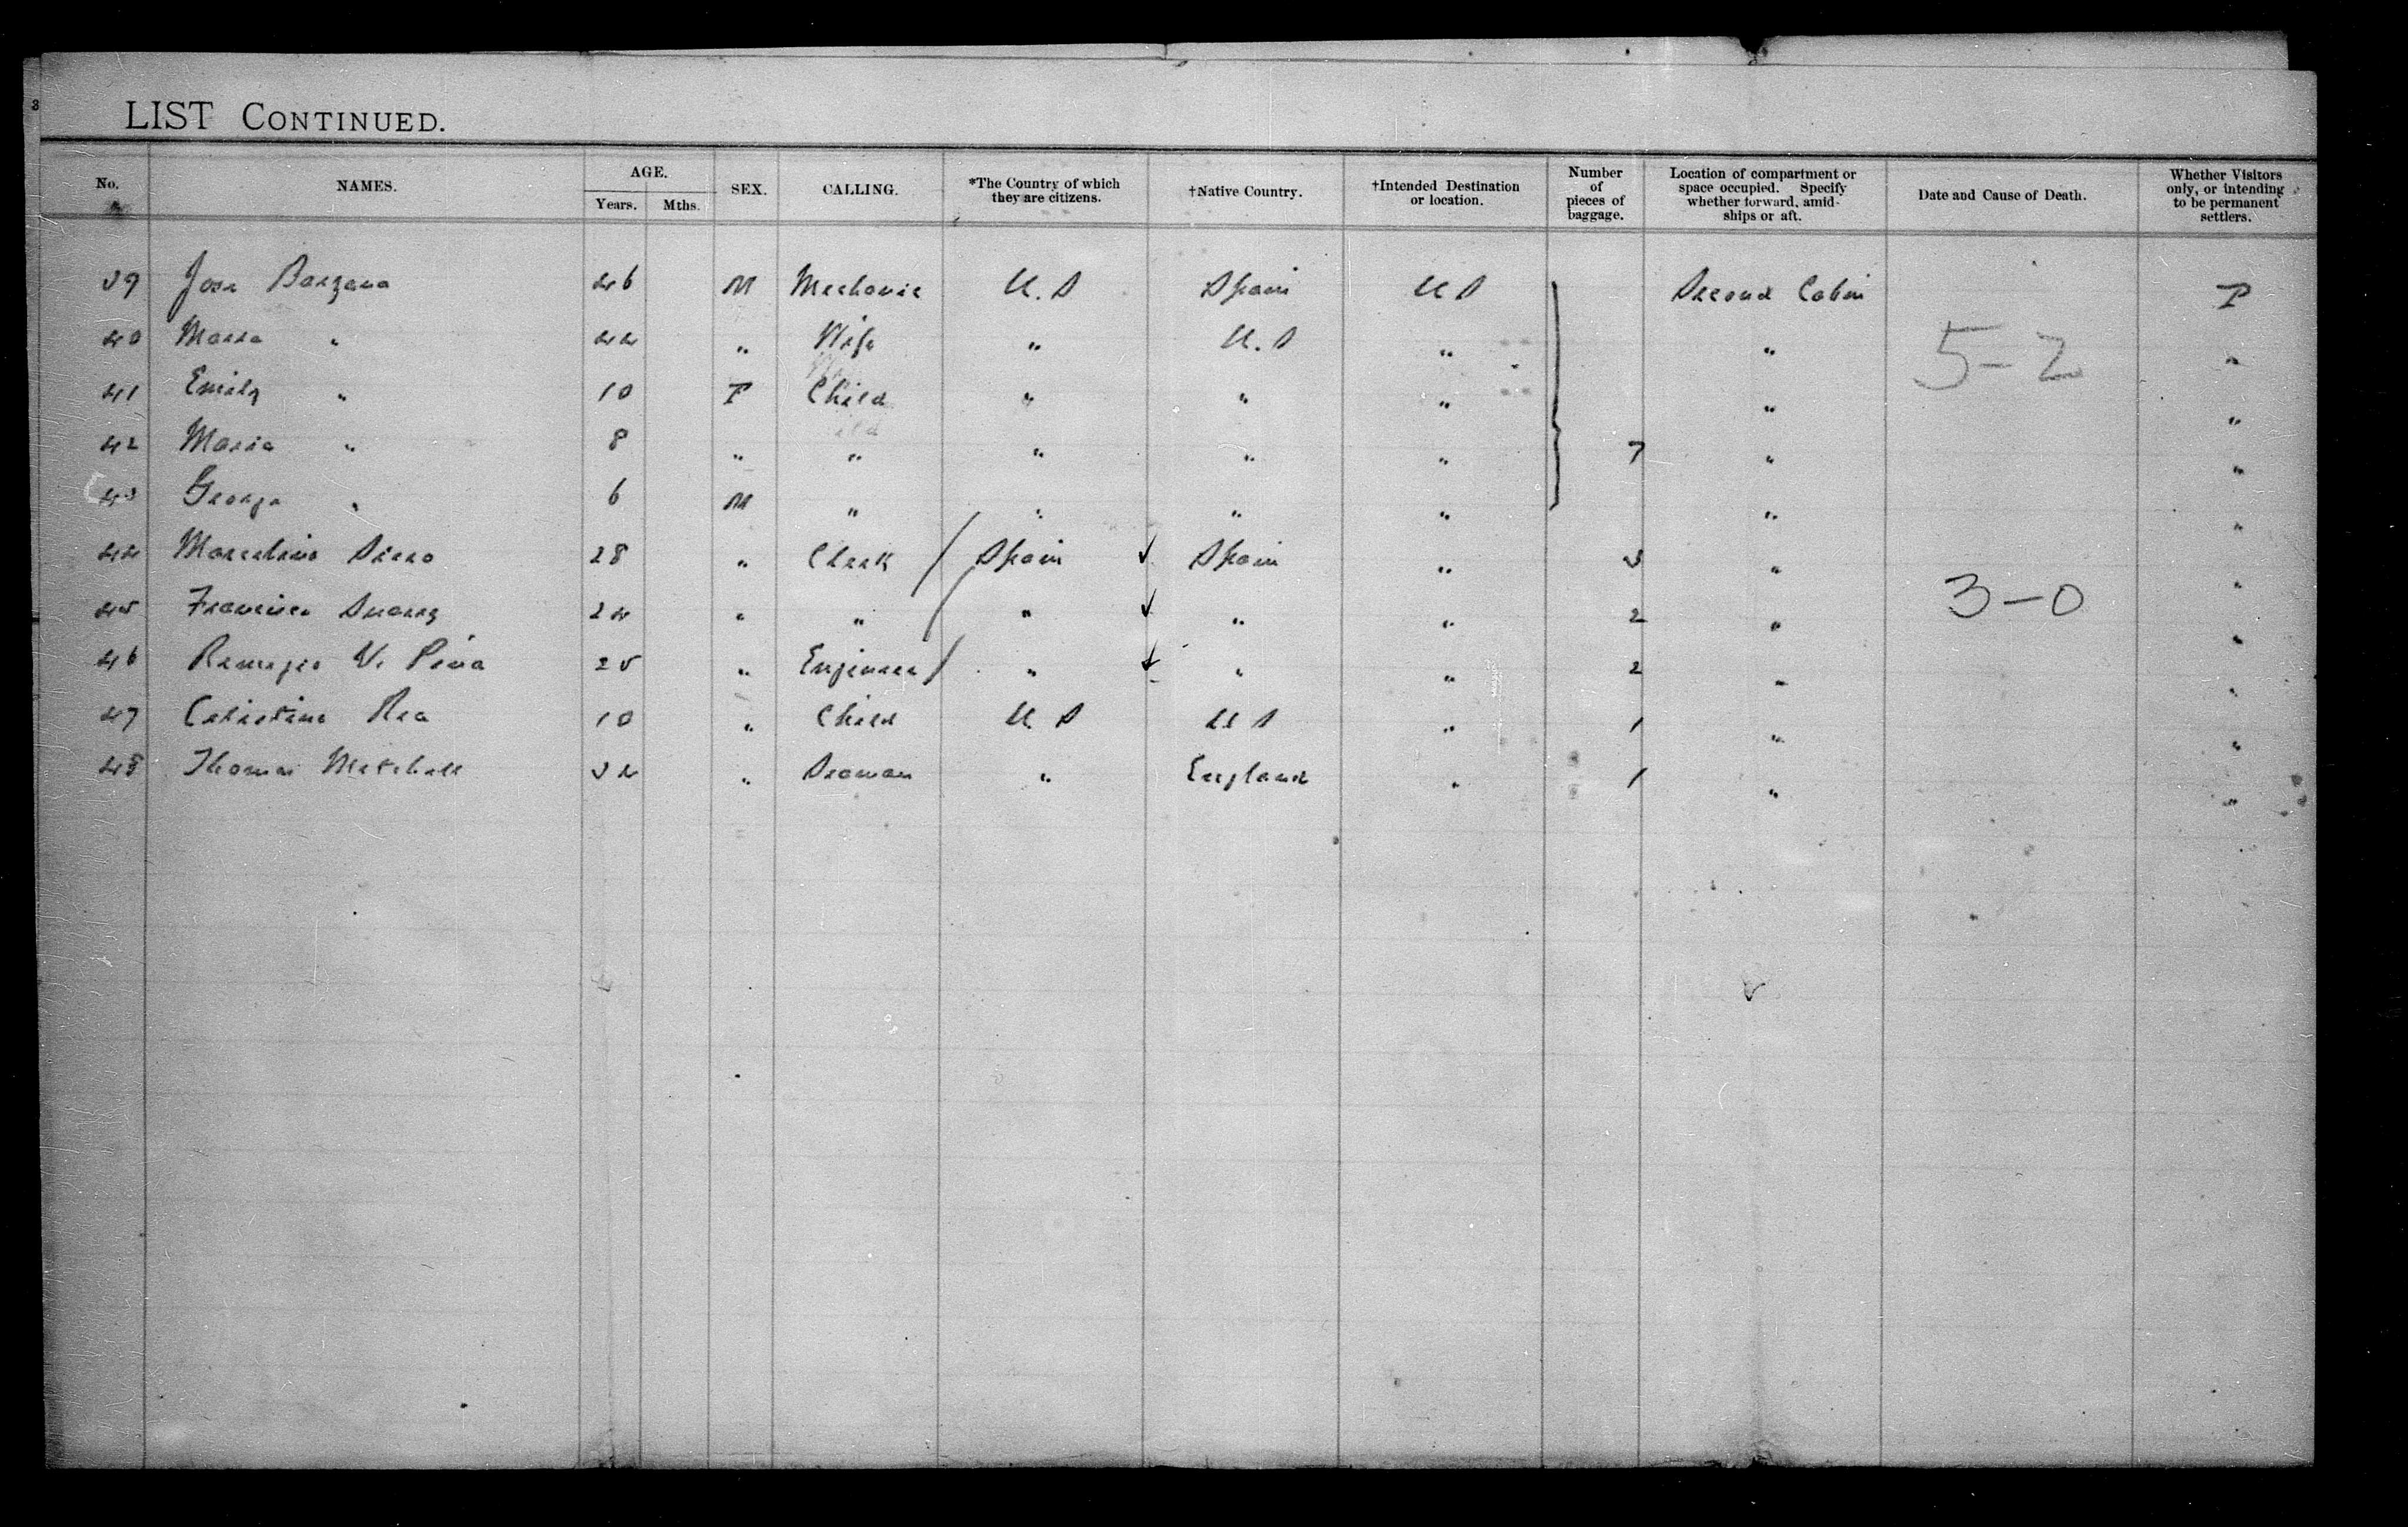 3
LIST CONTINUED.
No. NAMES. AGE. Years. Mths. SEX. CALLING. *The Country of which they are citizens. †Native Country. †Intended Destination or location. Number of pieces of baggage. Location of compartment or space occupied. Specify whether forward, amidships or aft. Date and Cause of Death. Whether Visitors only, or intending to be permanent settlers.
39 Jose Barzana 46 M Mechanic U.S Spain U S Second Cabin P
40 Maria " 44 " Wife " U.S " " 5-2 "
41 Emily " 10 F Child " " " " "
42 Maria " 8 " " " " " 7 " "
43 George " 6 M " " " " " "
44 Marcelino 28 " Clerk Spain ✓ Spain " 3 " "
45 Francisco Suarez 24 " " " ✓ " " 2 " 3-0 "
46 Remigio V. Pina 25 " Engineer " ✓ " " 2 " "
47 Celistino Rea 10 " Child U S U S " 1 " "
48 Thomas Mitchell 34 " Seaman " England " 1 " "